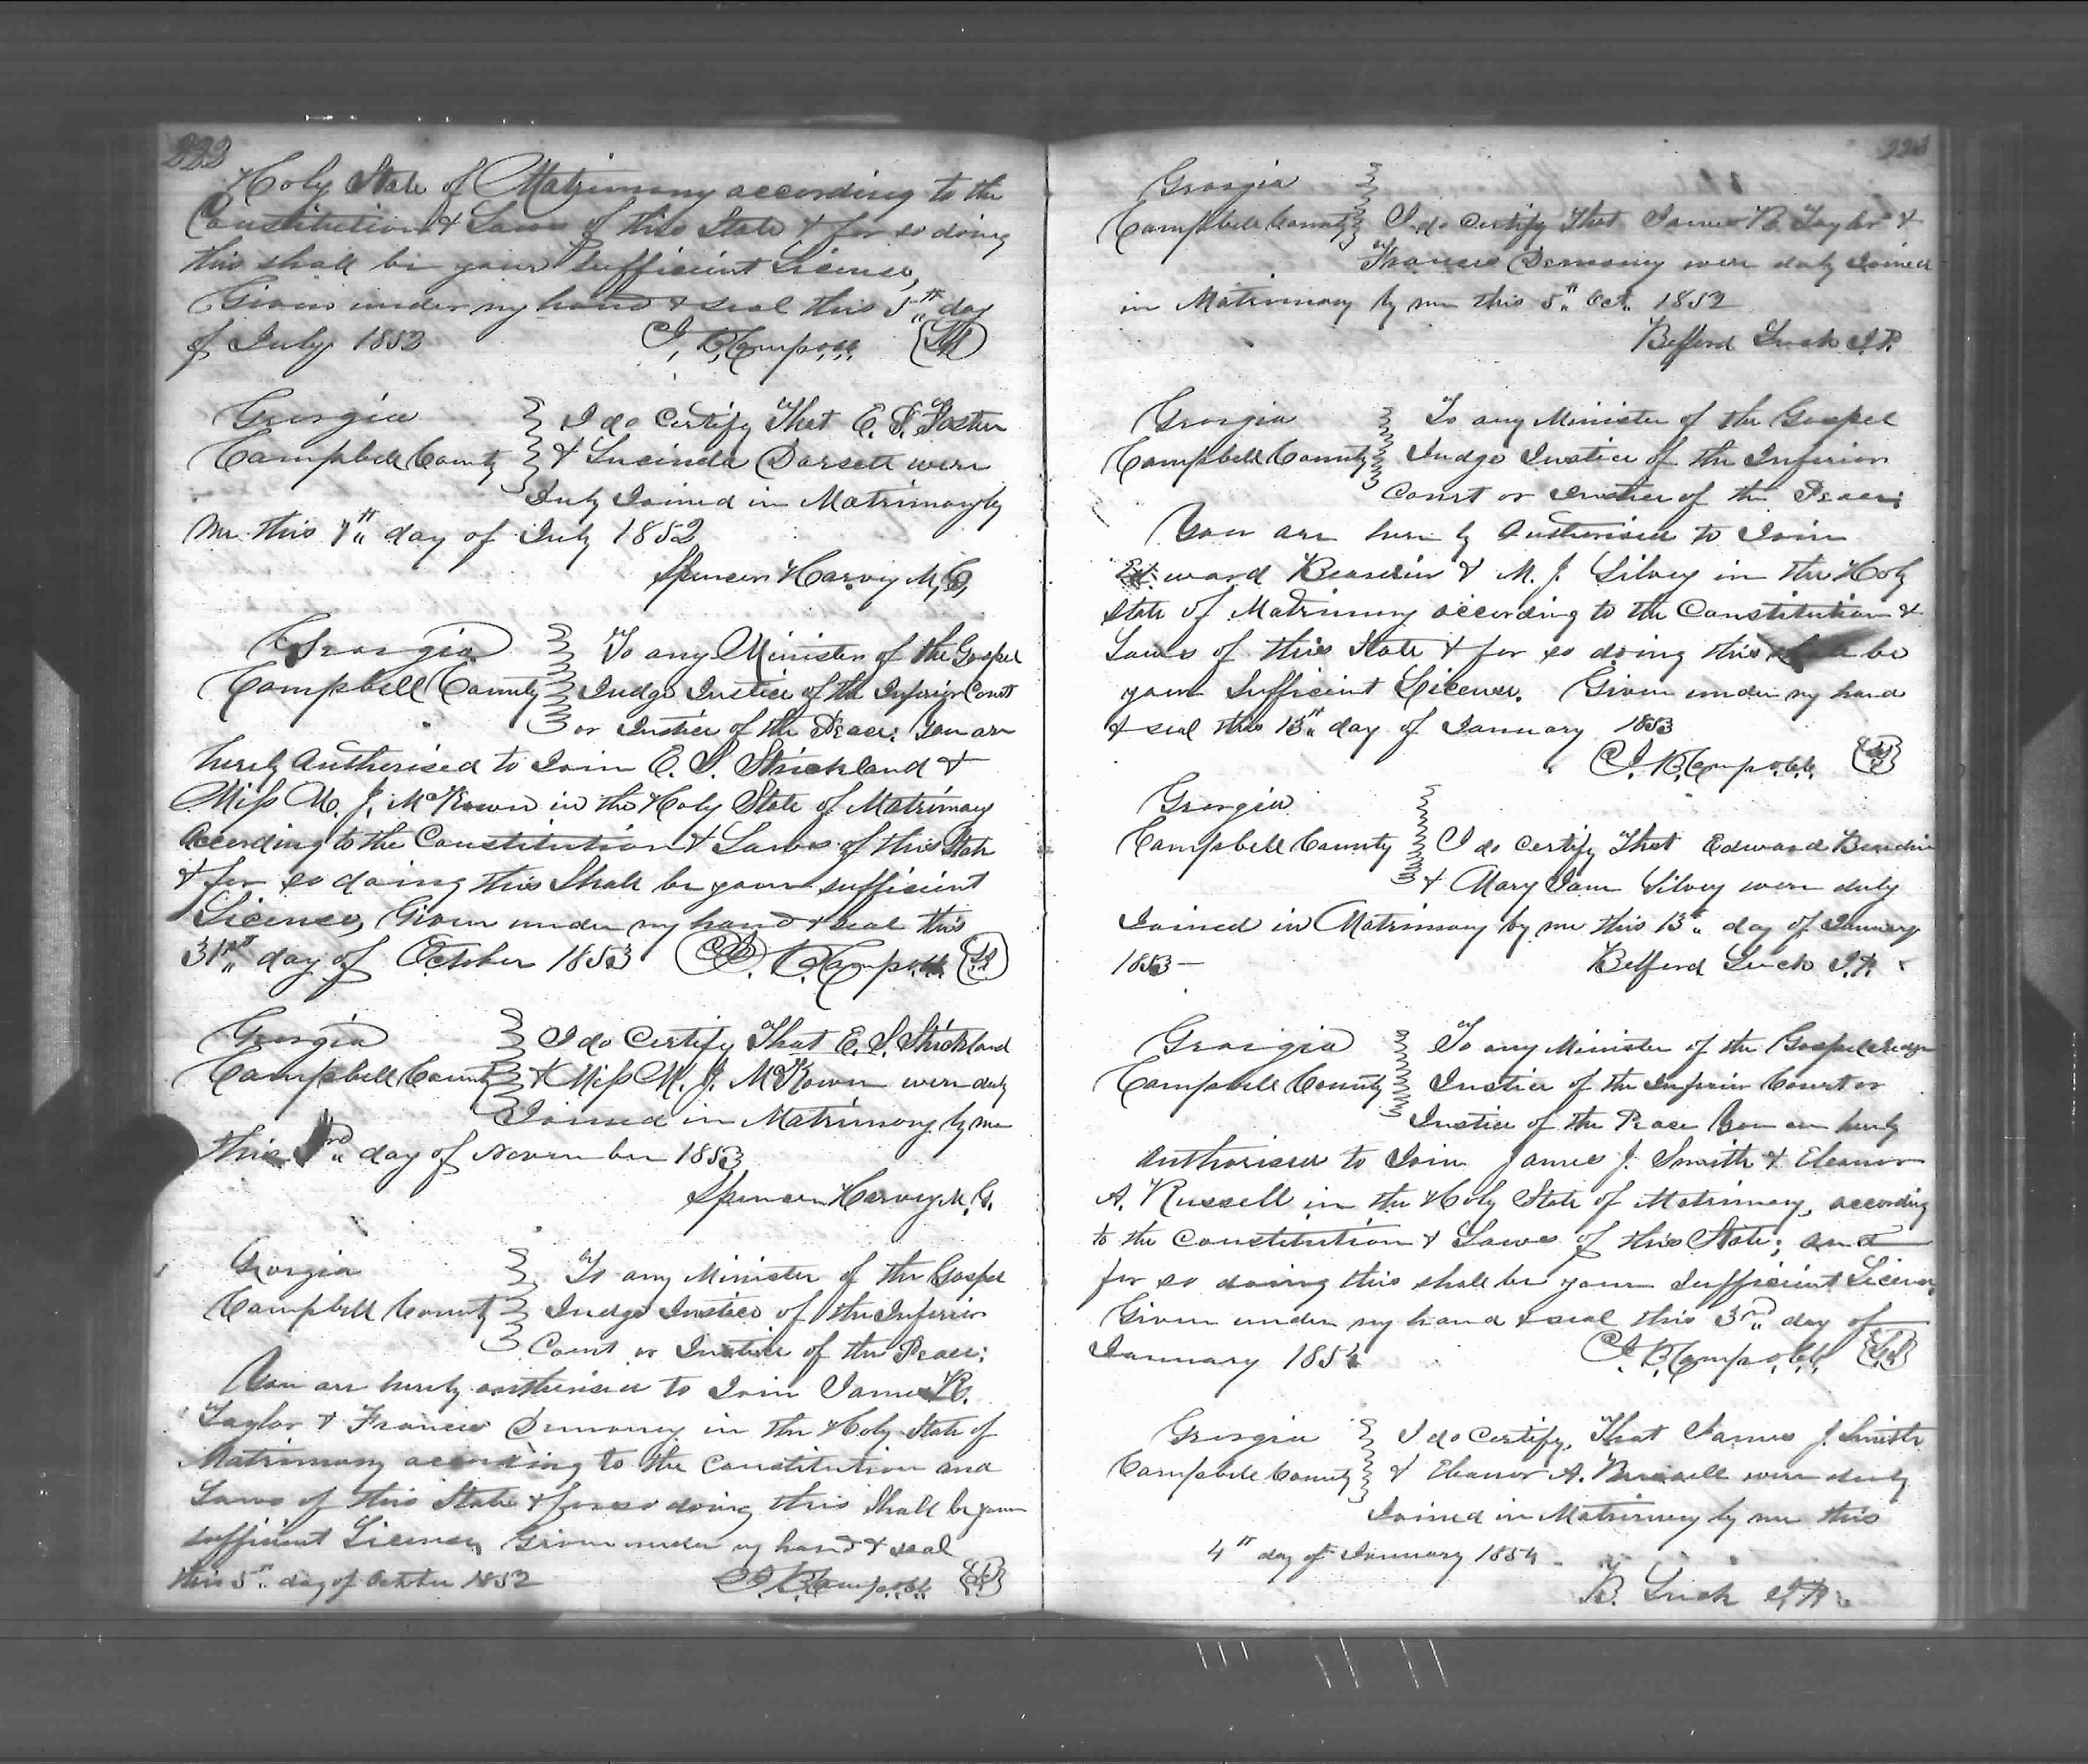 222
Holy State of Matrimony according to the
Constitution & Laws of this State & for so doing
this shall be your sufficient License,
Given under my hand & seal this 5th day
of July 1852
I do Certify That E. S.
Georgia
Campbell County & Lucinda Dorsett were
duly Joined in Matrimony by
me this 7th day of July 1852
Spencer Harvey M.G.
Georgia To any Minister of the Gospel
Campbell County Judge Justice of the Inferior Court
or Justice of the Peace: You are
hereby Authorised to Join E. S. Strickland &
Miss M. J. McKown in the Holy State of Matrimony
According to the Constitution & Laws of this State
& for so doing this Shall be your sufficient
License, Given under my hand & seal this
31st day of October 1853
Georgia I do Certify That E. S. Strickland
Campbell County & Miss M. J. McKown were duly
Joined in Matrimony by me
this 3rd day of November 1853
Spencer Harvey M.G.
Georgia To any Minister of the Gospel
Campbell County Judge Justice of the Inferior
Court or Justice of the Peace:
You are hereby authorised to Join James R.
Taylor & Frances in the Holy State of
Matrimony according to the Constitution and
Laws of this State & for so doing this Shall be your
sufficient License, Given under my hand & seal
this 5th day of October 1852
223
Georgia
Campbell County I do Certify That James R. Taylor &
Frances were duly Joined
in Matrimony by me this 5th Oct. 1852
Luck J.P.
Georgia To any Minister of the Gospel
Campbell County Judge Justice of the Inferior
Court or Justice of the Peace;
You are here by Authorised to Join
Edward & M. J. Silvey in the Holy
State of Matrimony according to the Constitution &
Laws of this State & for so doing this shall be
your Sufficient License. Given under my hand
& seal this 13th day of January 1853
Georgia
Campbell County I do Certify That Edward
& Mary Jane Silvey were duly
Joined in Matrimony by me this 13th day of January
1853 - Luck J.P.
Georgia To any Minister of the Gospel Judge
Campbell County Justice of the Inferior Court or
Justice of the Peace You are hereby
Authorised to Join James J. Smith & Eleanor
A. Russell in the Holy State of Matrimony, according
to the Constitution & Laws of this State; and
for so doing this shall be your Sufficient License,
Given under my hand & seal this 3rd day of
January 1854
Georgia I do Certify, That James J. Smith
Campbell County & Eleanor A. Russell were duly
Joined in Matrimony by me this
4th day of January 1854
B. Luck J.P.